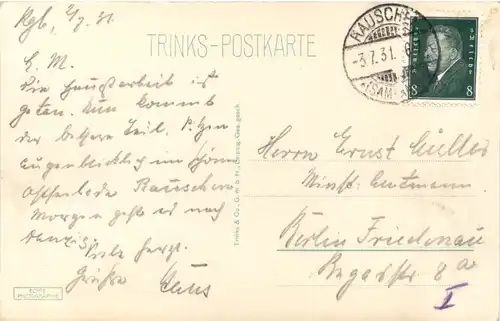 Kgb, 2/7. 31.
L. M.
Die Hauptarbeit ist
getan. Nun kommt
der bessere Teil.
augenblicklich im schönen
Ostseebade Rauschen
Morgen geht es nach
Danzig. Viele herzl.
Grüße
TRINKS-POSTKARTE
Trinks & Co., G. m. b. H., Leipzig. Ges. gesch.
RAUSCHEN
-3.7.31.
(SAML.)
Deutsches Reich
8 8
Herrn Ernst Müller
Minist. Amtmann
Berlin Friedenau
Begasstr 8a
I
ECHTE
PHOTOGRAPHIE